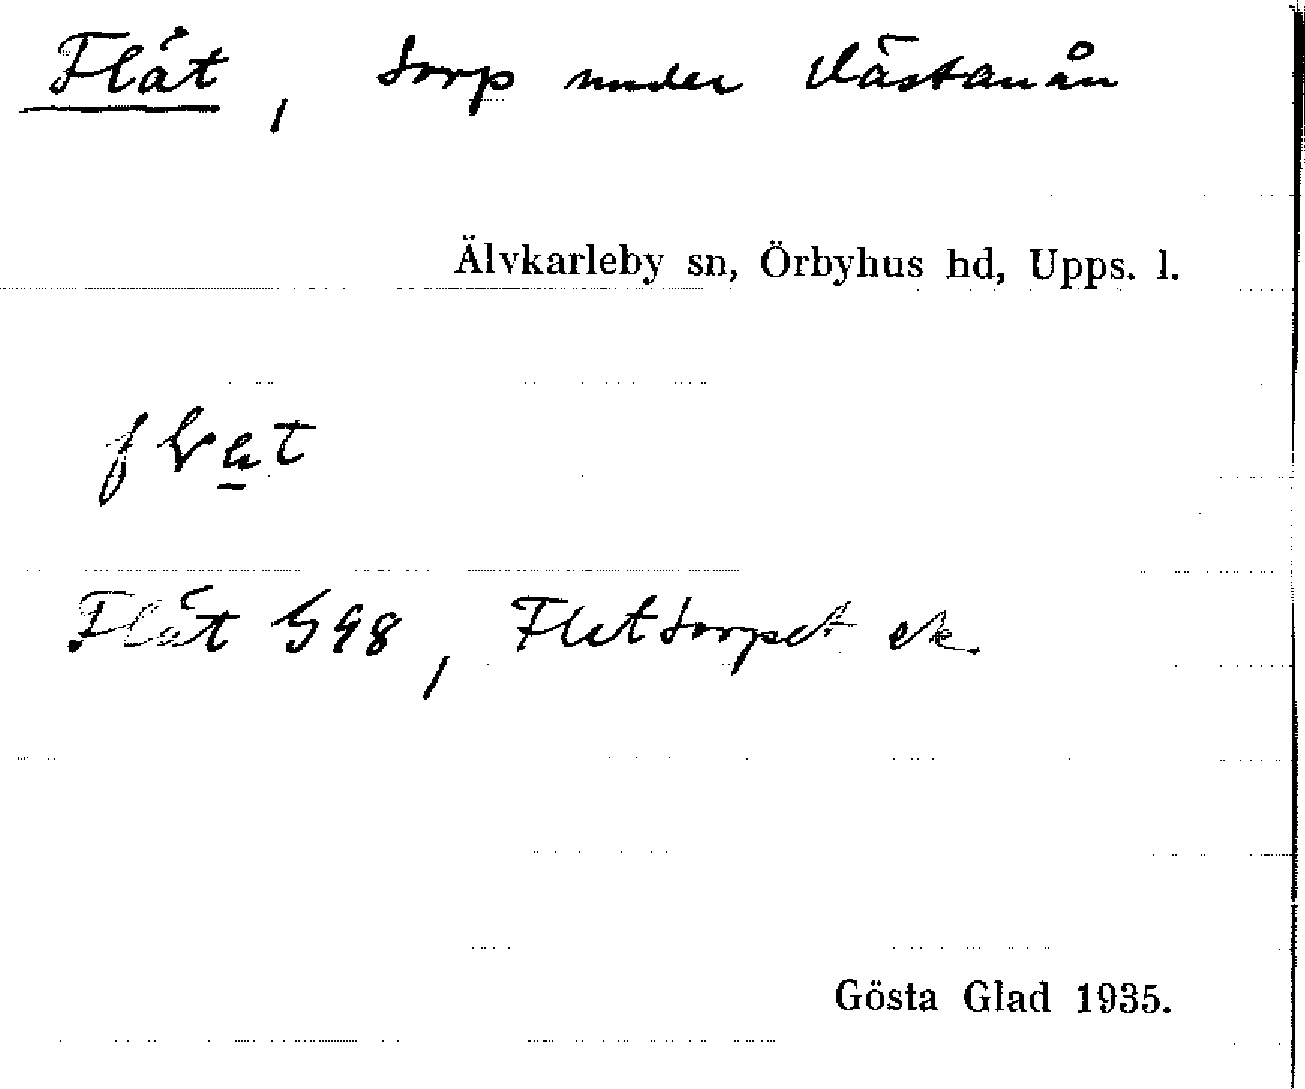 Flät, torp under Västanån
Älvkarleby sn, Örbyhus hd, Upps. l.
Flät G98, Flettorpet ek.
Gösta Glad 1935.